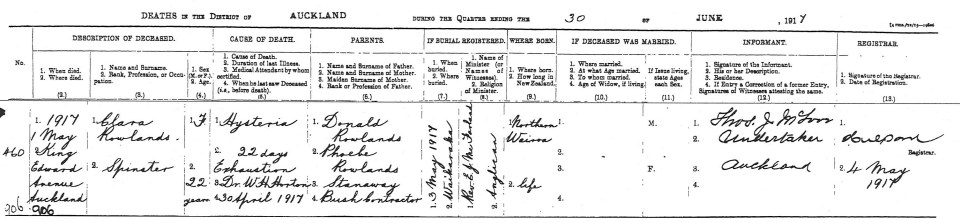 DEATHS IN THE DISTRICT OF AUCKLAND DURING THE QUARTER ENDING THE 30 OF JUNE, 1917
No.
DESCRIPTION OF DECEASED.
CAUSE OF DEATH.
PARENTS.
IF BURIAL REGISTERED.
WHERE BORN.
IF DECEASED WAS MARRIED.
INFORMANT.
REGISTRAR.
1. When died.
2. Where died.
(2.)
1. Name and Surname.
2. Rank, Profession, or Occupation.
(3.)
1. Sex (M. or F.)
2. Age.
(4.)
1. Cause of Death.
2. Duration of last Illness.
3. Medical Attendant by whom certified.
4. When he last saw Deceased (i.e., before death).
(5.)
1. Name and Surname of Father.
2. Name and Surname of Mother.
3. Maiden Surname of Mother.
4. Rank or Profession of Father.
(6.)
1. When buried.
2. Where buried.
(7.)
1. Name of Minister (or Names of Witnesses).
2. Religion of Minister.
(8.)
1. Where born.
2. How long in New Zealand.
(9.)
1. Where married.
2. At what Age married.
3. To whom married.
4. Age of Widow, if living.
(10.)
If Issue living, state Ages each Sex.
(11.)
1. Signature of the Informant.
2. His or her Description.
3. Residence.
4. If Entry a Correction of a former Entry, Signatures of Witnesses attesting the same.
(12.)
1. Signature of the Registrar.
2. Date of Registration.
(13.)
460
906
1. 1917
1 May
2. King
Edward
Avenue
Auckland
906
1. Clara
Rowlands
2. Spinster
1. F
2.
22
years
1. Hysteria
2. 22 days
Exhaustion
3. Dr. W H Horton
4. 30 April 1917
1. Donald
Rowlands
2. Phoebe
Rowlands
3. Stanaway
4. Bush Contractor
1. 3 May 1917
2. Waikaraka
1. Rev. E. J.
2. Anglican
1. Northern
Wairoa
2. life
1.
2.
3.
4.
M.
F.
1. Thos. J.
2. Undertaker
3. Auckland
4.
1.
Registrar.
2. 4 May
1917